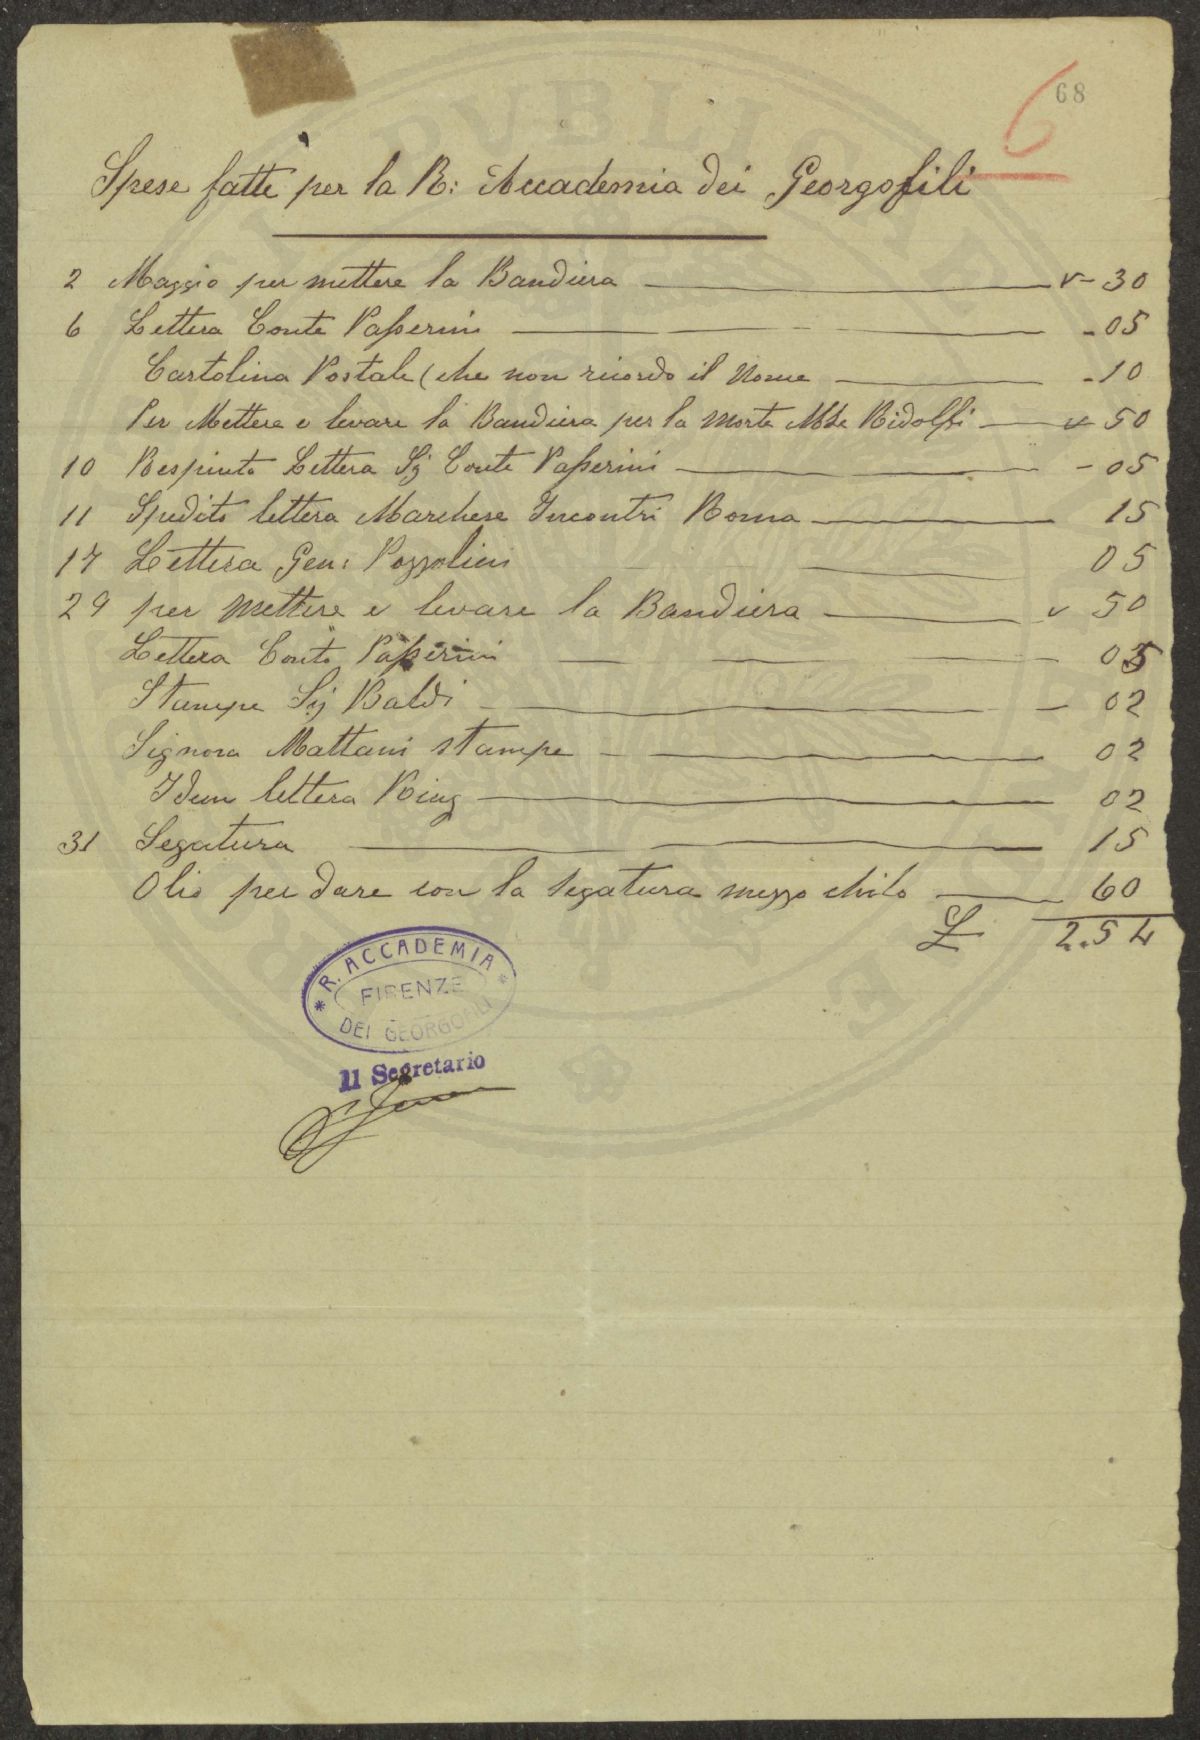 68
6
Spese fatte per la R: Accademia dei Georgofili
2 Maggio per mettere la Bandiera v- 30
6 Lettera Conte Passerini - 05
Cartolina Postale (che non ricordo il Nome - 10
Per Mettere e levare la Bandiera per la Morte Mse Ridolfi v 50
10 Respinto Lettera Sig Conte Passerini - 05
11 Spedito lettera Marchese Incontri Roma 15
17 Lettera Gen: Pozzolini 05
29 per mettere e levare la Bandiera v 50
Lettera Conte Passerini 05
Stampe Sig Baldi 02
Signora Mattani stampe 02
Idem lettera 02
31 Segatura 15
Olio per dare con la segatura mezzo chilo 60
£ 2.54
R. ACCADEMIA
FIRENZE
DEI GEORGOFILI
Il Segretario
PUBLICA